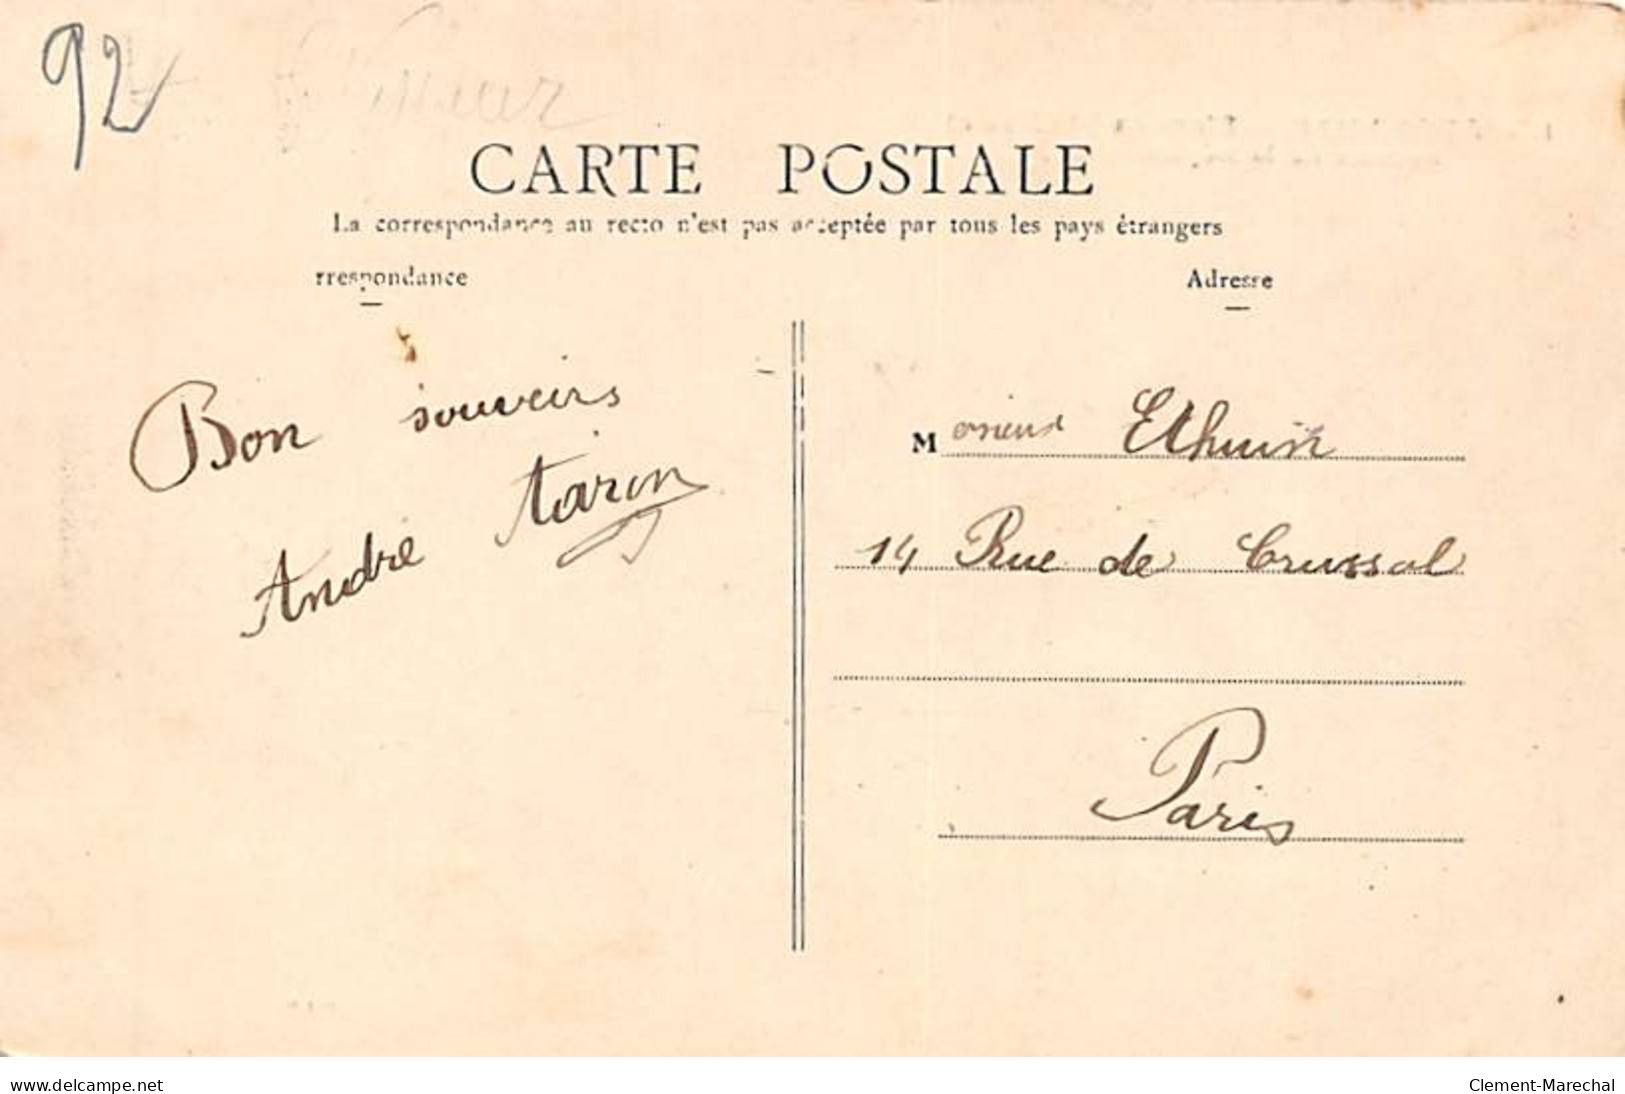 92
CARTE POSTALE
La correspondance au recto n'est pas acceptée par tous les pays étrangers
rrespondance
Adresse
Bon souveirs
André Taron
Monsieur Ethuin
14 Rue de Crussol
Paris
www.delcampe.net
Clement-Marechal